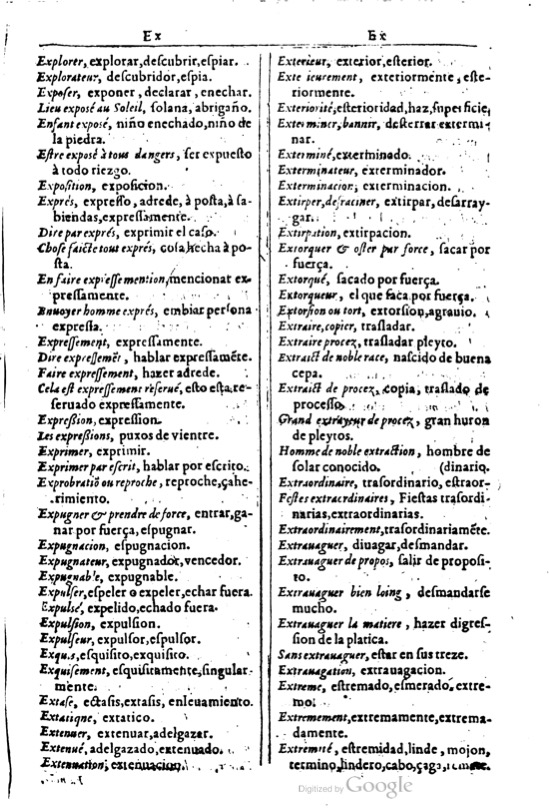 Ex
Explorer, explorar, descubrir, eſpiar.
Explorateur, deſcubridor, eſpia.
Expoſer, exponer, declarar, enechar.
Lieu expoſé au Soleil, ſolana, abrigaño.
Enfant expoſé, niño enechado, niño de
la piedra.
Eſtre expoſé à tous dangers, ſer expueſto
à todo riezgo.
Expoſition, expoſicion.
Exprés, expreſſo, adrede, à poſta, à ſa-
biendas, expreſſamente.
Dire par exprés, exprimir el caſo.
Choſe faicte tout exprés, coſa hecha à po-
ſta.
En faire expreſſe mention, mencionar ex-
preſſamente.
Enuoyer homme exprés, embiar perſona
expreſſa.
Expreſſement, expreſſamente.
Dire expreſſemẽt, hablar expreſſamẽte.
Faire expreſſement, hazer adrede.
Cela eſt expreſſement reſerué, eſto eſta re-
ſeruado expreſſamente.
Expreſſion, expreſſion.
Les expreſſions, puxos de vientre.
Exprimer, exprimir.
Exprimer par eſcrit, hablar por eſcrito.
Exprobratiõ ou reproche, reproche, çahe-
rimiento.
Expugner & prendre de force, entrar, ga-
nar por fuerça, eſpugnar.
Expugnacion, eſpugnacion.
Expugnateur, expugnador, vencedor.
Expugnable, expugnable.
Expulſer, eſpeler o expeler, echar fuera.
Expulsé, expelido, echado fuera.
Expulſion, expulſion.
Expulſeur, expulſor, eſpulſor.
Exquis, eſquiſito, exquiſito.
Exquiſement, eſquiſitamente, ſingular-
mente.
Extaſe, ectaſis, extaſis, enleuamiento.
Extatique, extatico.
Extenuer, extenuar, adelgazar.
Extenué, adelgazado, extenuado.
Extenuation, extenuacion.
Ex
Exterieur, exterior, eſterior.
Exterieurement, exteriormente, eſte-
riormente.
Exteriorité, eſterioridad, haz, ſuperficie,
Exterminer, bannir, deſterrar extermi-
nar.
Exterminé, exterminado.
Exterminateur, exterminador.
Exterminacion, exterminacion.
Extirper, deſraciner, extirpar, deſarray-
gar.
Extirpation, extirpacion.
Extorquer & oſter par force, ſacar por
fuerça.
Extorqué, ſacado por fuerça.
Extorqueur, el que ſaca por fuerça.
Extorſion ou tort, extorſion, agrauio.
Extraire, copier, trasladar.
Extraire procez, trasladar pleyto.
Extraict de noble race, naſcido de buena
cepa.
Extraict de procez, copia, traſlado de
proceſſo.
Grand extrayeur de procez, gran huron
de pleytos.
Homme de noble extraction, hombre de
ſolar conocido. (dinario.
Extraordinaire, traſordinario, eſtraor-
Feſtes extraordinaires, Fieſtas traſordi-
narias, extraordinarias.
Extraordinairement, traſordinariamẽte.
Extrauaguer, diuagar, deſmandar.
Extrauaguer de propos, ſalir de propoſi-
to.
Extrauaguer bien loing, deſmandarſe
mucho.
Extrauaguer la matiere, hazer digreſ-
ſion de la platica.
Sans extrauaguer, eſtar en ſus treze.
Extrauagation, extrauagacion.
Extreme, eſtremado, eſmerado, extre-
mo.
Extremement, extremamente, extrema-
damente.
Extremité, eſtremidad, linde, mojon,
termino, lindero, cabo, çaga,
Digitized by Google